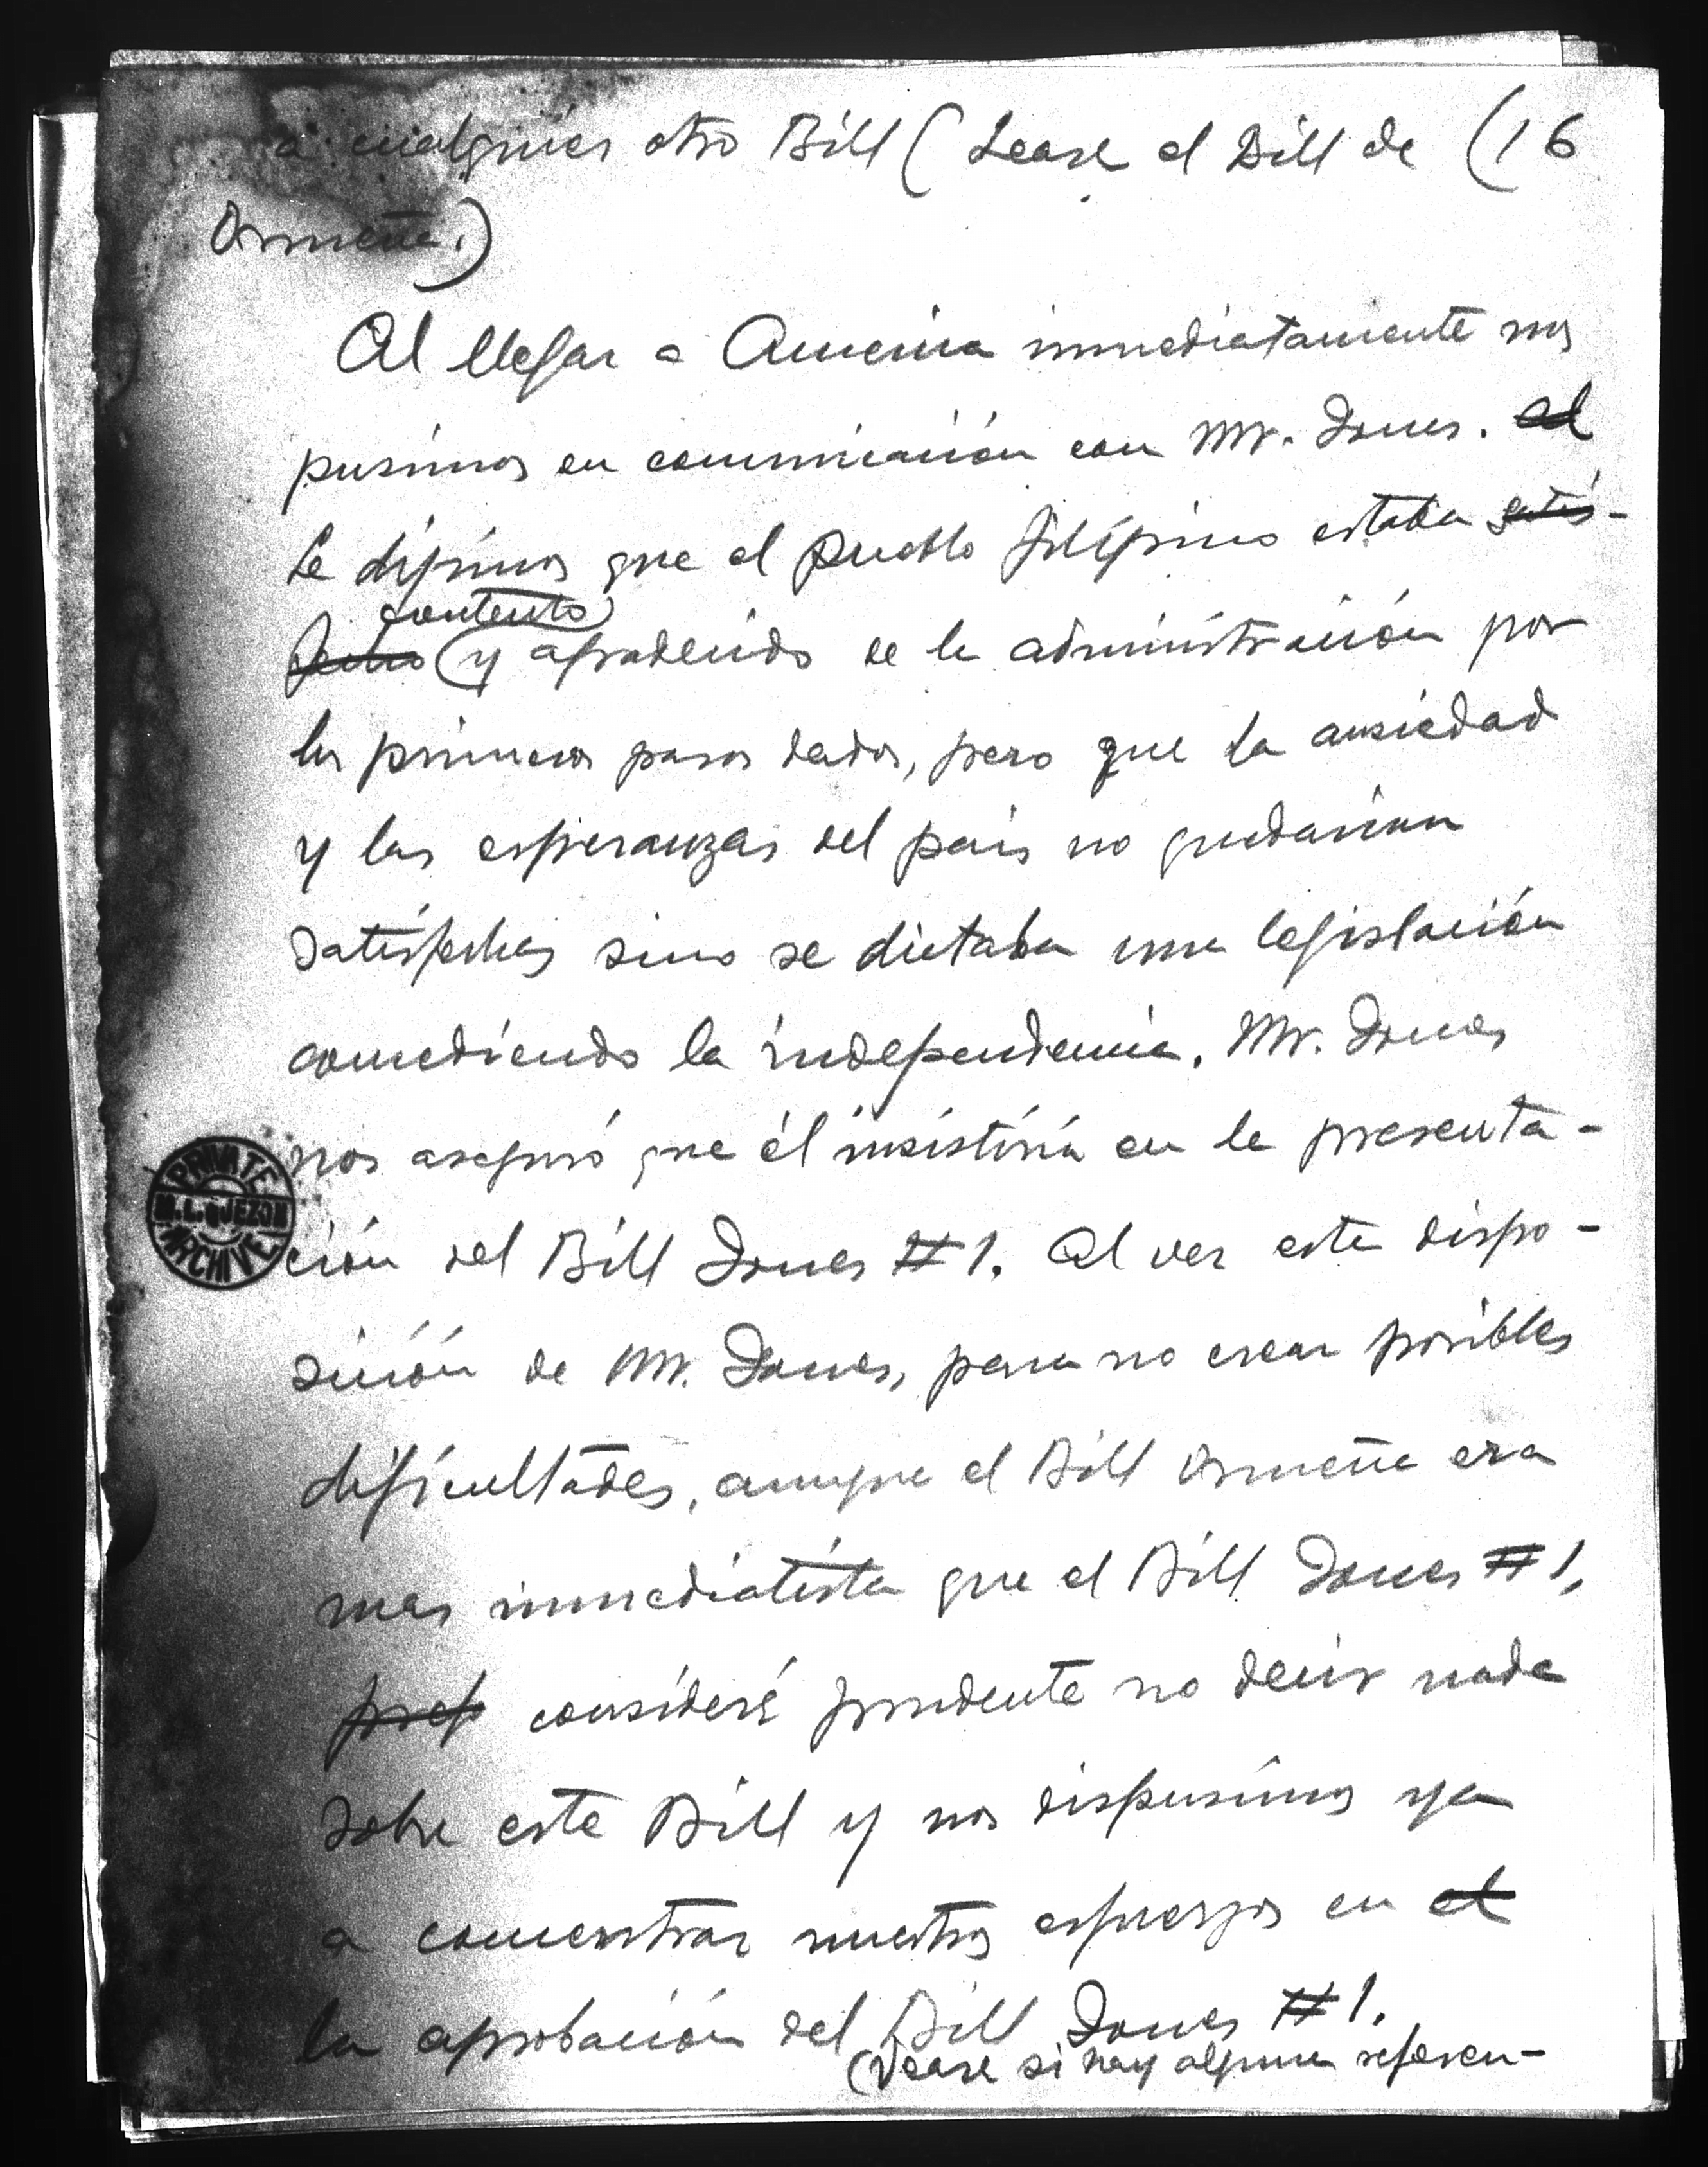 a cualquier otro Bill (Lease el Bill de (16
Osmeña.)
Al llegar a America inmediatamente nos
pusimos en comunicación con Mr. Jones. el
Le dijimos que el pueblo filipino estaba satis-
contento
fecho y agradecido de la administración por
los primeros pasos dados, pero que la ansiedad
y las esperanzas del pais no quedarian
satisfechas sino se dictaba una legislación
concediendo la independencia. Mr. Jones
nos aseguró que él insistiría en la presenta-
ción del Bill Jones #1. Al ver esta dispo-
sición de Mr. Jones, para no crear posibles
dificultades, aunque el Bill Osmeña era
mas inmediatista que el Bill Jones #1,
pref consideré prudente no decir nada
sobre este Bill y nos dispusimos ya
a concentrar nuestros esfuerzos en el
la aprobación del Bill Jones #1.
(Vease si hay alguna referen-
PRIVATE
M.L. QUEZON
ARCHIVE